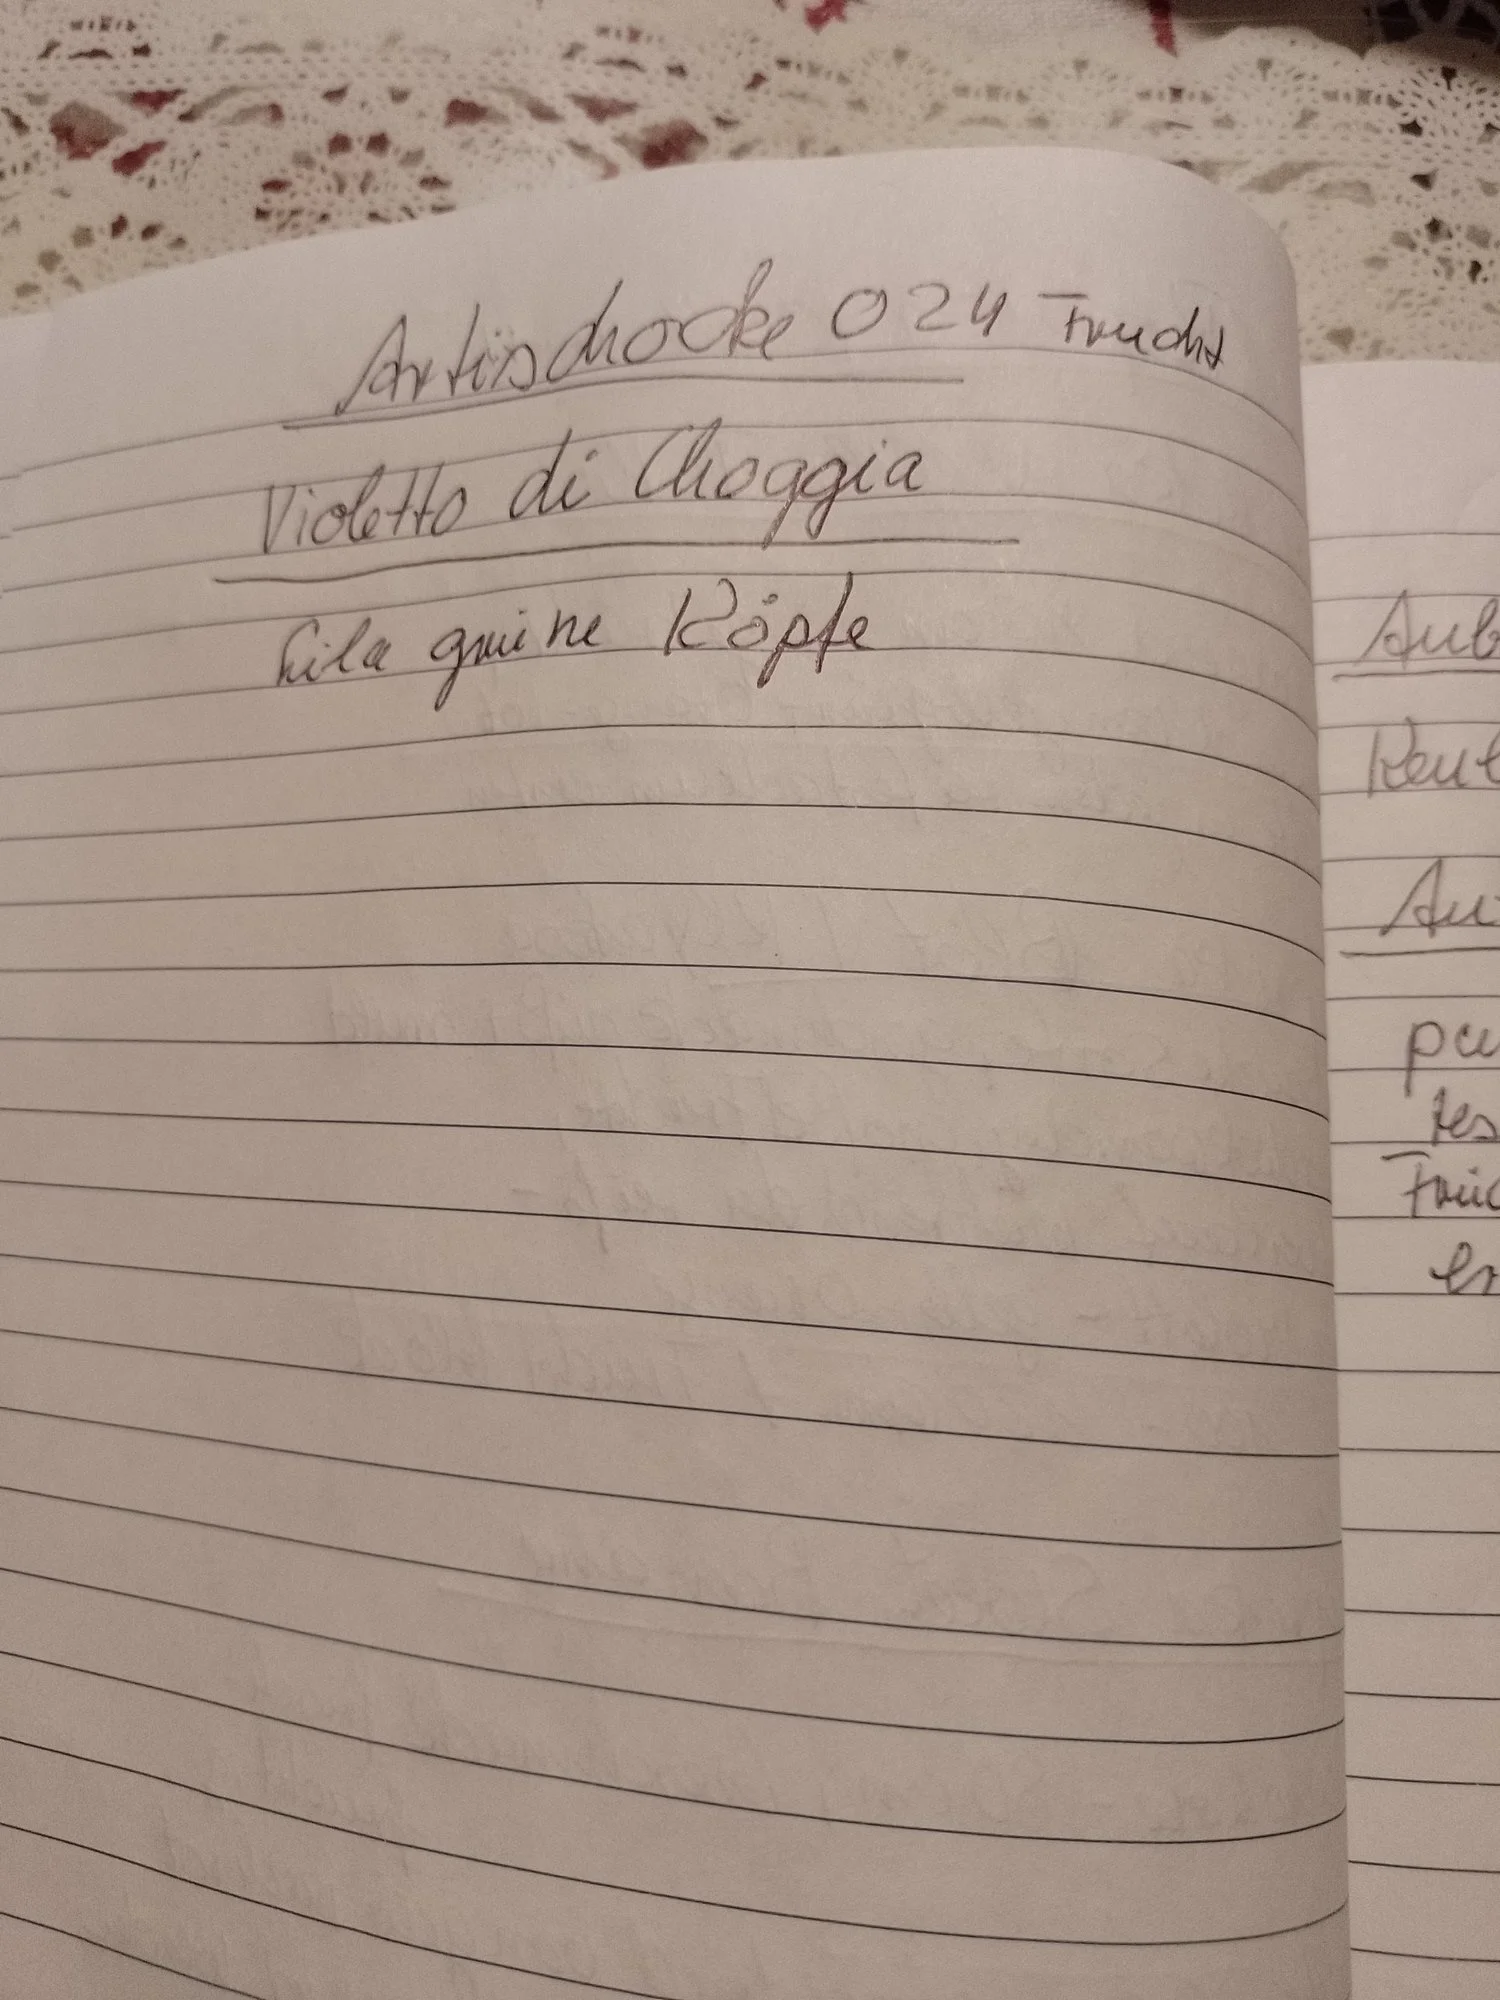 Artischocke 024 Frucht
Violetto di Choggia
Lila grüne Köpfe
Aub
Keul
Au
pa
tes
Früc
er